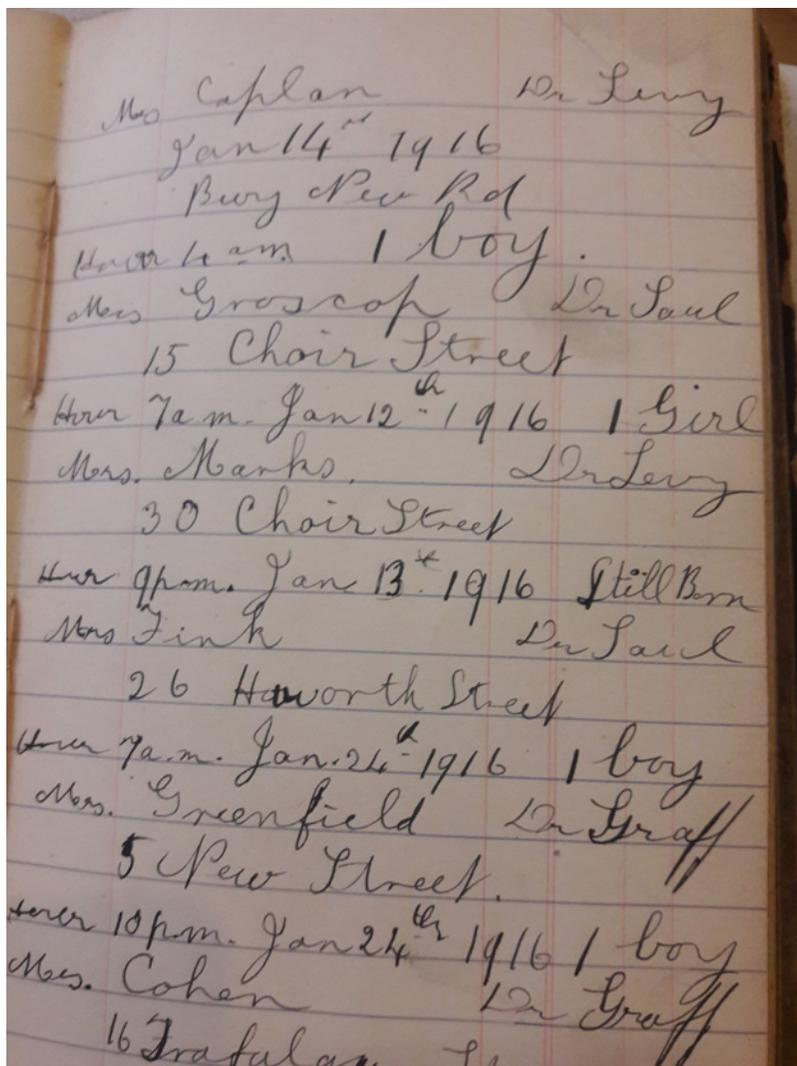 Mrs Caplan Dr Levy
Jan 14th 1916
Bury New Rd
Hour 4 am. 1 boy.
Mrs Groscop Dr Saul
15 Choir Street
Hour 7a.m. Jan 12th 1916 1 Girl
Mrs. Marks. Dr Levy
30 Choir Street
Hour 9p.m. Jan 13th 1916 Still Born
Mrs Fink Dr Saul
26 Haworth Street
Hour 7a.m. Jan. 24th 1916 1 boy
Mrs. Greenfield Dr Graff
5 New Street.
Hour 10p.m. Jan 24th 1916 1 boy
Mrs. Cohen Dr Graff
16